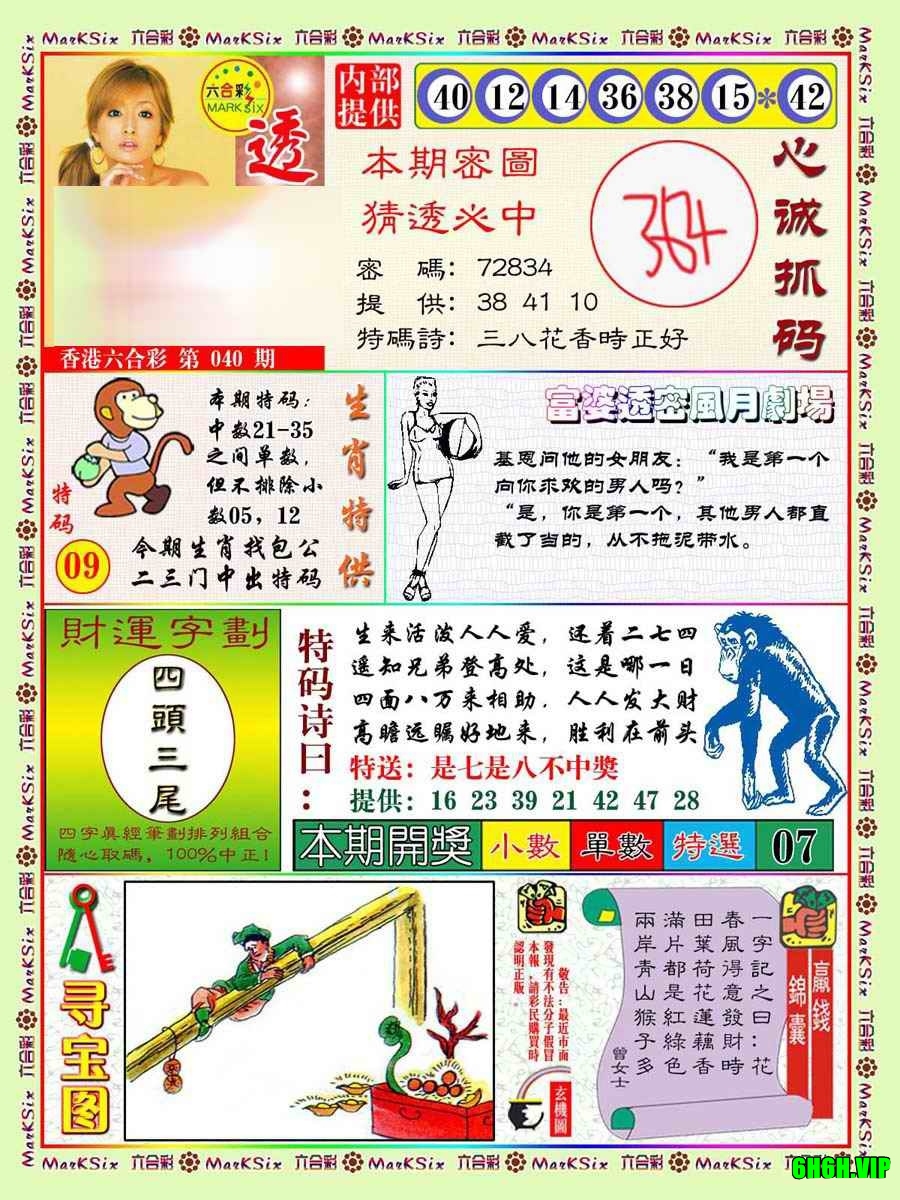 MarKSix 六合彩 MarKSix 六合彩 MarKSix 六合彩 MarKSix 六合彩 MarKSix 六合彩
六合彩
MARK SIX
透
内部
提供
40 12 14 36 38 15*42
本期密圖
猜透必中
密 碼：72834
提 供：38 41 10
特碼詩：三八花香時正好
心诚抓码
香港六合彩 第 040 期
本期特码：
中数21-35
之间单数，
但不排除小
数05，12
今期生肖找包公
二三门中出特码
生肖特供
特码
09
富婆透密風月劇場
基恩问他的女朋友：“我是第一个
向你求欢的男人吗？”
“是，你是第一个，其他男人都直
截了当的，从不拖泥带水。
財運字劃
四頭三尾
四字真經筆劃排列組合
隨心取碼，100%中正!
特码诗曰：
生来活泼人人爱，还着二七四
遥知兄弟登高处，这是哪一日
四面八万来相助，人人发大财
高瞻远瞩好地来，胜利在前头
特送：是七是八不中獎
提供：16 23 39 21 42 47 28
本期開獎 小數 單數 特選 07
寻宝图
敬告：最近市面
發現有不法分子假冒
本報，請彩民購買時
認明正版。
玄機圖
贏錢
錦囊
一字記之曰：花
春風得意發財時
田葉荷花蓮藕香
滿片都是紅綠色
兩岸青山猴子多
曾女士
MarKSix 六合彩 MarKSix 六合彩 MarKSix 六合彩 MarKSix 六合彩 MarKSix
6H6H.VIP